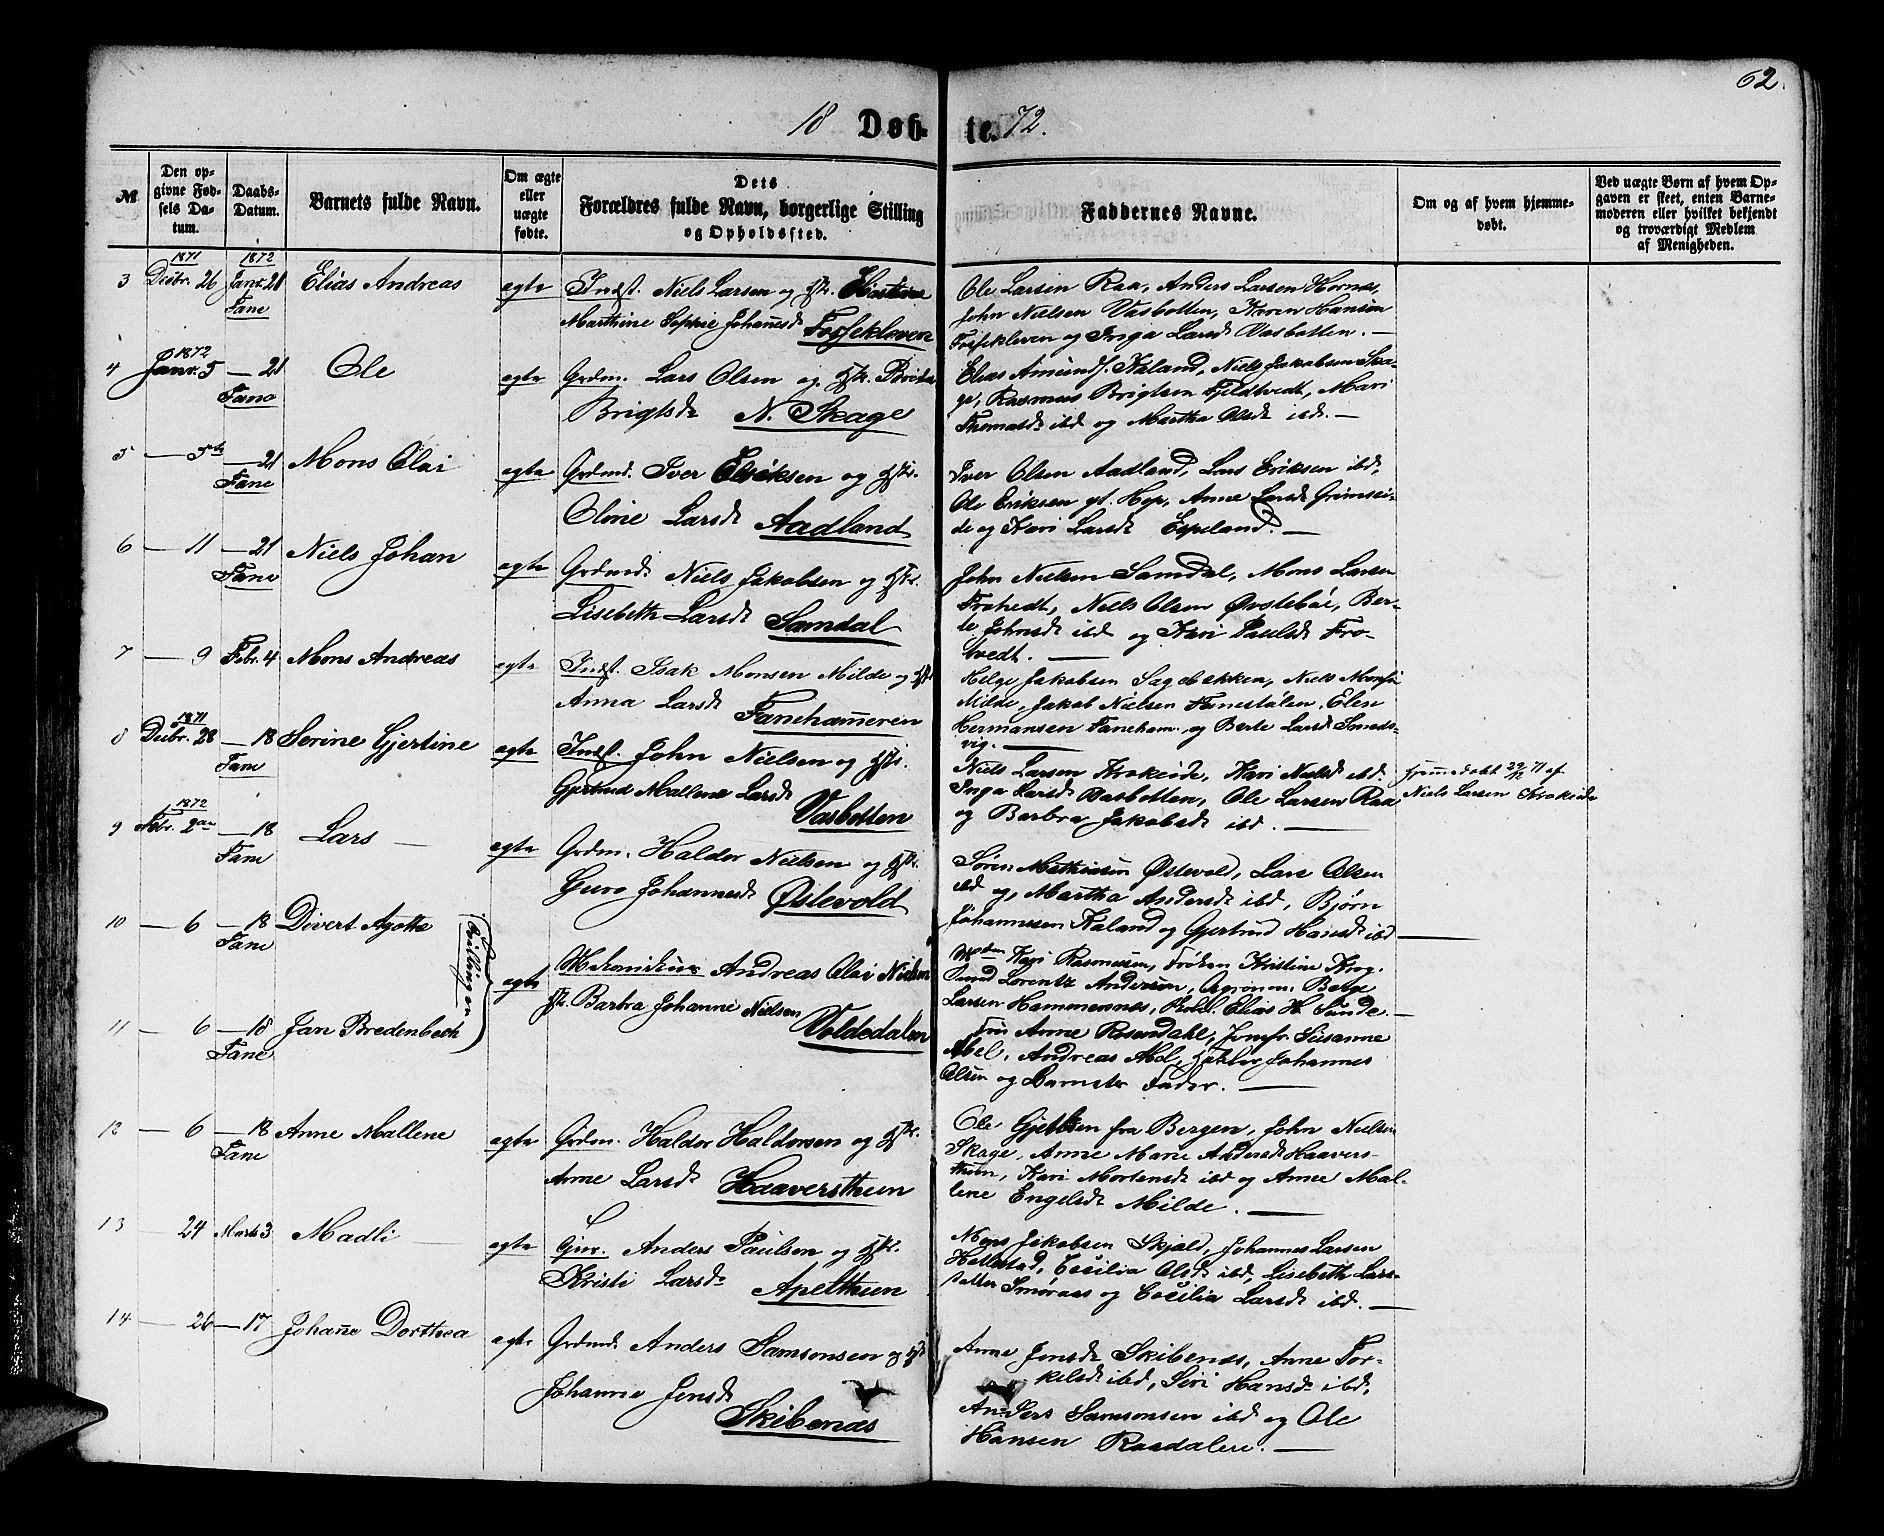 62.
18 Døb- te. 72.
№
Den op-
givne Fød-
sels Da-
tum.
Daabs-
Datum.
Barnets fulde Navn.
Om ægte
eller
uægte
fødte.
Dets
Forældres fulde Navn, borgerlige Stilling
og Opholdssted.
Faddernes Navne.
Om og af hvem hjemme-
døbt.
Ved uægte Børn af hvem Op-
gaven er skeet, enten Barne-
moderen eller hvilket bekjendt
og troværdigt Medlem
af Menigheden.
1871 1872
3 Decbr. 26 Janr. 21 Elias Andreas egte Indst. Niels Larsen og Hstr.
Fane
Marthine Sophie Johannesdt Fossekleven
Ole Larsen Raa, Anders Larsen Hornes,
John Nielsen Vasbotten, Karen Hansen
Fossekleven og Inga Larsdt Vasbotten. —
1872
4 Janr. 5 — 21 Ole egte Grdm. Lars Olsen og Hstr. Brita
Fane
Brigtsdt N. Skage
Elias Amunds. Kaland, Niels Jakobsen Ska-
ge, Rasmus Brigtsen Fjeldtvedt, Mari
Thomasdt ibd og Martha Olsdt ibd. —
5 — 5te — 21 Mons Olai egte Grdmd. Iver Eriksen og Hstr.
Fane
Oline Larsdt Aadland
Iver Olsen Aadland, Lars Eriksen ibd,
Ole Eriksen yt. Hop, Anne Larsdt Grimsei-
de og Kari Larsdt Espeland. —
6 — 11 — 21 Niels Johan egte Grdmd. Niels Jakobsen og Hstr.
Fane
Lisebeth Larsdt Samdal
John Nielsen Samdal, Mons Larsen
Frotvedt, Niels Olsen Øvstebøe, Ber-
te Johnsdt ibd og Kari Paulsdt Fro-
tvedt. —
7 — 9 Febr. 4 Mons Andreas egte Indst. Isak Monsen Milde og Hstr
Anna Larsdt Fanehammeren
Helge Jakobsen Sagebekken, Niels Monsen
Milde, Jakob Nielsen Fanestølen, Elen
Hermansen Faneham. og Berte Larsdt Smeds-
vig. —
1871
8 Decbr. 28 — 18 Serine Gjertine egte Indst. John Nielsen og Hstr.
Fane
Gjertrud Mallene Larsdt
Vasbotten
Niels Larsen Krokeide, Kari Nielsdt ibd.
Inga Larsdt Vasbotten, Ole Larsen Raa
og Barbra Jakobsdt ibd. —
hjemmedøbt 29/12 71 af
Niels Larsen Krokeide
1872
9 Febr. 2den — 18 Lars — egte Grdm. Haldor Nielsen og Hstr.
Fane
Guro Johannesdt Østevold
Søren Mathiasen Østevold, Lars Olsen
ibd og, Martha Andersdt ibd, Bjørn
Johannessen Kaland og Gjertrud Hansdt ibd —
10 — 6 — 18 Divert Agotha
Fane
Tvillinger
egte Mekanikus Andreas Olai Nielsen
Hstr. Barbra Johanne Nielsen
Voldedalen
Kari Rasmussen, Frøken Kristine Krog.
Lorentz Andersen, Agronom Berge
Larsen Hammersnes, Elias H. Tunde. —
11 — 6 — 18 Jan Bredenbech
Fane
Fru Anne Rosendahl, Jomfr. Susanne
Abel, Andreas Abel, Johannes
Olsen og Barnets Fader. —
12 — 6 — 18 Anne Mallene egte Grdm. Haldor Haldorsen og Hstr.
Fane
Anne Larsdt Haaversthun
Ole Gjertsen fra Bergen, John Nielsen
Skage, Anne Marie Andersdt Haavers-
thun, Kari Mortensdt ibd og Anne Mal-
lene Engelsdt Milde. —
13 — 24 Marts 3 Madli — egte Gmr. Anders Paulsen og Hstr.
Kristi Larsdt Apelthun
Mons Jakobsen Skjold, Johannes Larsen
Hollestad, Cecilia Olsdt ibd, Lisebeth Lars-
datter Smøraas og Cecilia Larsdt ibd. —
14 — 26 — 17 Johanne Dorthea egte Grdmd. Anders Samsonsen og Hstr
Johanne Jensdt
Skibenæs
Anne Jensdt Skibenæs, Anne Tor-
kelsdt ibd, Siri Hansdt ibd,
Anders Samsonsen ibd og Ole
Hansen Raadalen. —